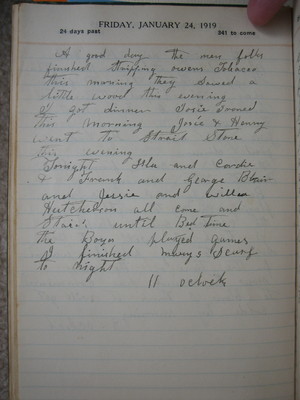 FRIDAY, JANUARY 24, 1919
24 days past 341 to come
A good day the men folks
finished stripping owens Tobacco
this morning they sawed a
little wood this evening
I got dinner Josie Ironed
this morning Josie & Henry
went to Strait Stone
this evening
Tonight Illa and Cordie
& Frank and George Blair
and Jessie and Willea
Hutcherson all come and
Staid until Bed Time
The Boys played games
I finished marys Scarf
to night
11 oclock